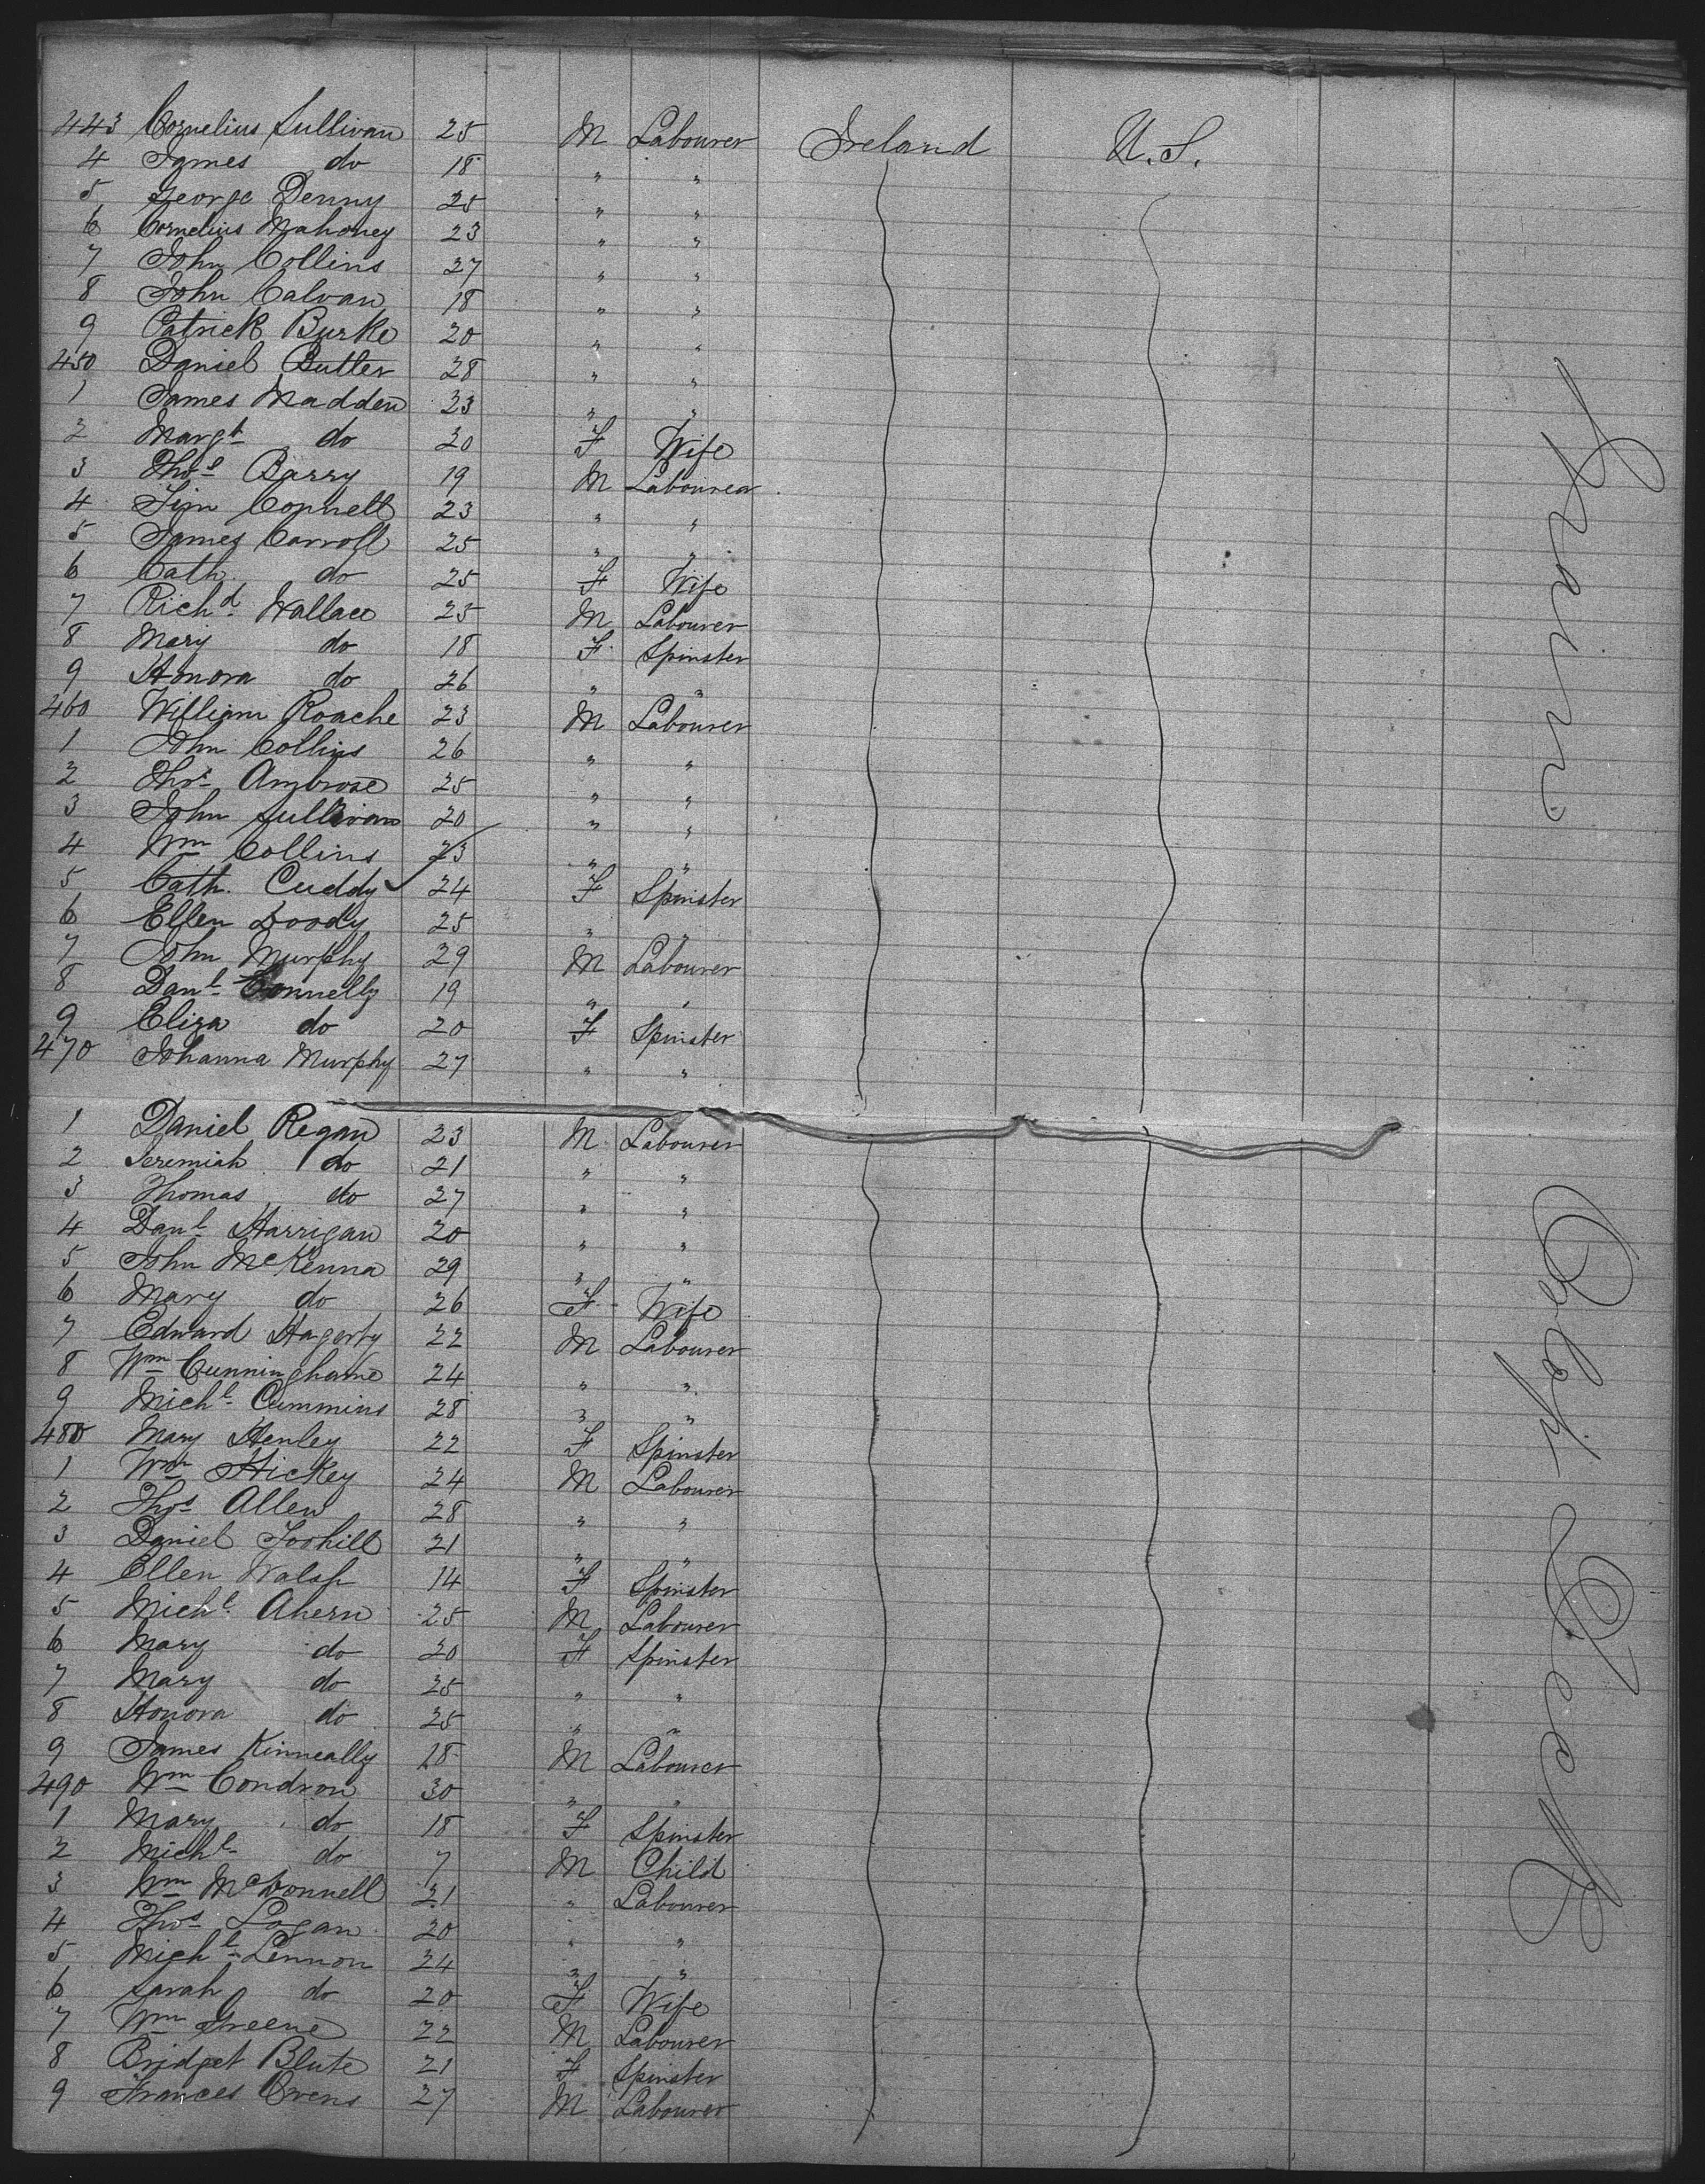 443 Cornelius Sullivan 25 M Labourer Ireland U.S.
4 James do 18 " "
5 George Denny 25 " "
6 Cornelius Mahoney 23 " "
7 John Collins 27 " "
8 John Calvan 18 " "
9 Patrick Burke 20 " "
450 Daniel Butler 28 " "
1 James Madden 23 " "
2 Margt do 20 F Wife
3 Thos Barry 19 M Labourer
4 Tim Connell 23 " "
5 James Carroll 25 " "
6 Cath. do 25 F Wife
7 Richd Wallace 25 M Labourer
8 Mary do 18 F Spinster
9 Honora do 26 " "
460 William Roache 23 M Labourer
1 John Collins 26 " "
2 Thos Ambrose 25 " "
3 John Sullivan 20 " "
4 Wm Collins 23 " "
5 Cath. Cuddy 24 F Spinster
6 Ellen Doody 25 " "
7 John Murphy 29 M Labourer
8 Danl Connelly 19 " "
9 Eliza do 20 F Spinster
470 Johanna Murphy 27 " "
1 Daniel Regan 23 M Labourer
2 Jeremiah do 21 " "
3 Thomas do 27 " "
4 Danl Harrigan 20 " "
5 John McKenna 29 " "
6 Mary do 26 F Wife
7 Edward Hagerty 22 M Labourer
8 Wm Cunninghame 24 " "
9 Michl Cummins 28 " "
480 Mary Henley 22 F Spinster
1 Wm Hickey 24 M Labourer
2 Thos Allen 28 " "
3 Daniel Toohill 21 " "
4 Ellen Walsh 14 F Spinster
5 Michl Ahern 25 M Labourer
6 Mary do 20 F Spinster
7 Mary do 25 " "
8 Honora do 25 " "
9 James Kinneally 18 M Labourer
490 Wm Condron 30 " "
1 Mary do 18 F Spinster
2 Michl do 7 M Child
3 Wm McDonnell 21 " Labourer
4 Thos Logan 20 " "
5 Michl Lennon 24 " "
6 Sarah do 20 F Wife
7 Wm Greene 22 M Labourer
8 Bridget Blute 21 F Spinster
9 Frances Ovens 27 M Labourer